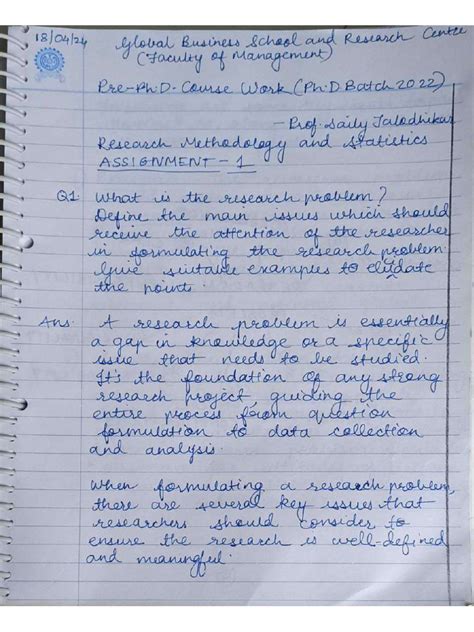 18/04/24
Global Business School and Research Centre
(Faculty of Management)
Pre-Ph.D. Course Work (Ph.D Batch 2022)
- Prof. Saily Jalodhikar
Research Methodology and Statistics
ASSIGNMENT - 1
Q1 What is the research problem?
Define the main issues which should
receive the attention of the researcher
in formulating the research problem.
Give suitable examples to elucidate
the points.
Ans. A research problem is essentially
a gap in knowledge or a specific
issue that needs to be studied.
It's the foundation of any strong
research project, guiding the
entire process from question
formulation to data collection
and analysis.
When formulating a research problem,
there are several key issues that
researchers should consider to
ensure the research is well-defined
and meaningful.